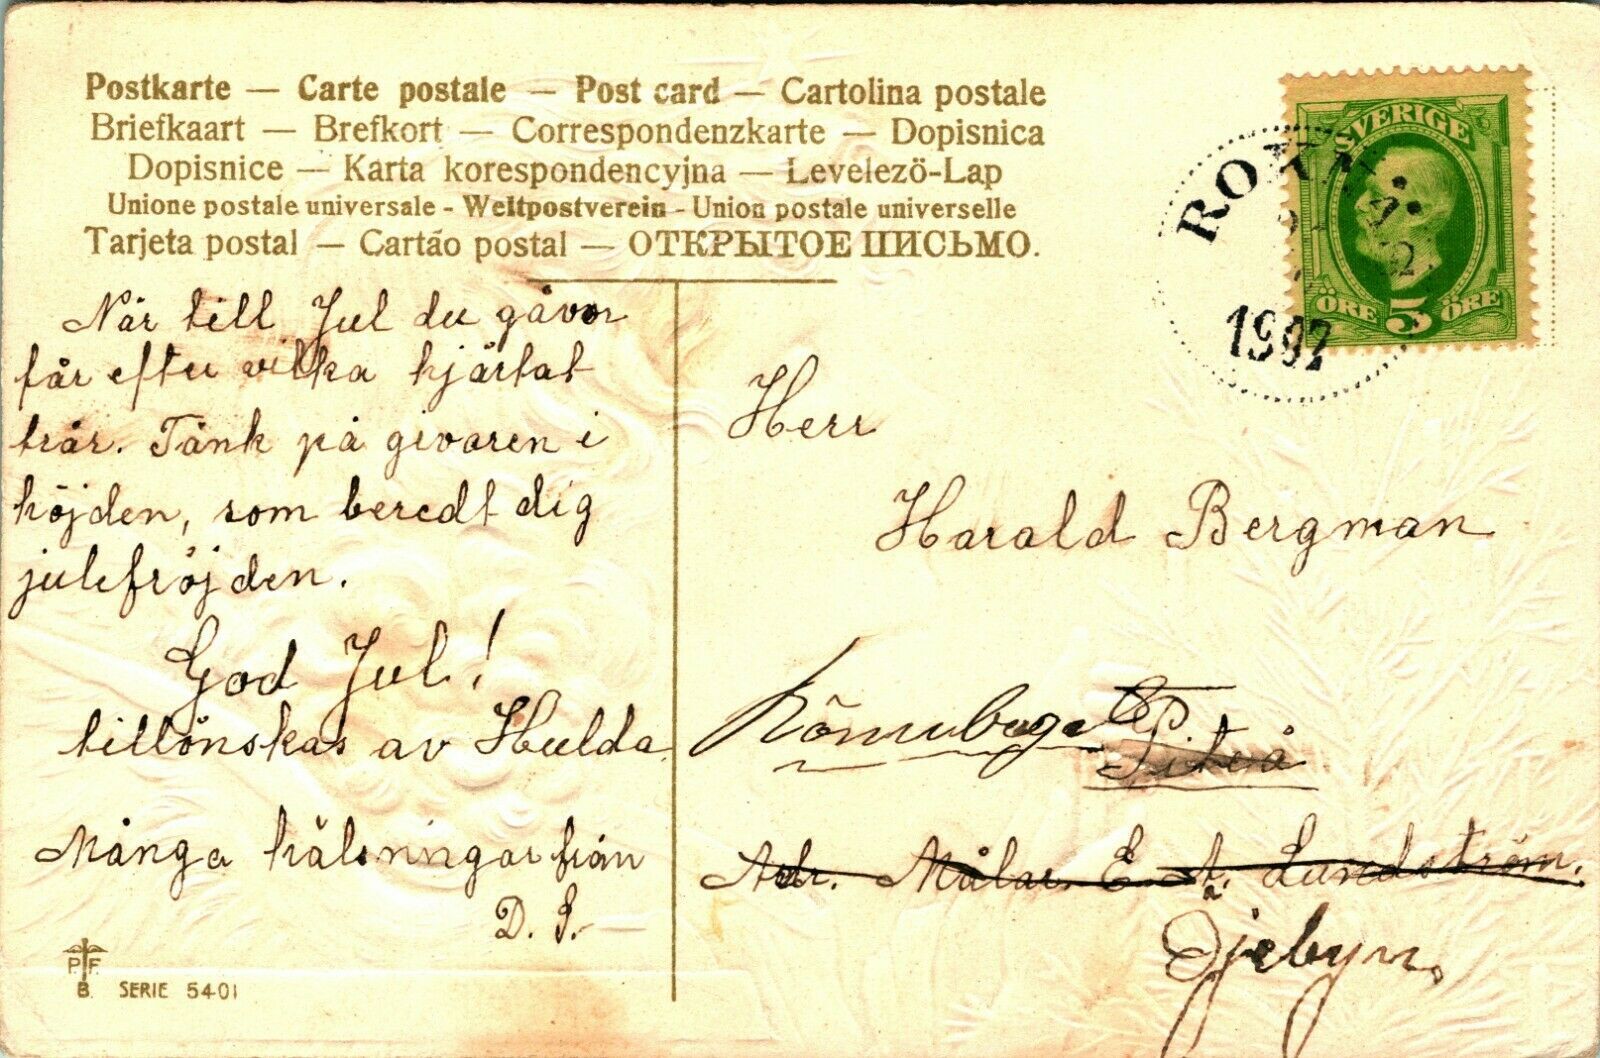 Postkarte — Carte postale — Post card — Cartolina postale
Briefkaart — Brefkort — Correspondenzkarte — Dopisnica
Dopisnice — Karta korespondencyjna — Levelező-Lap
Unione postale universale - Weltpostverein - Union postale universelle
Tarjeta postal — Cartão postal — ОТКРЫТОЕ ПИСЬМО.
SVERIGE
ÖRE 5 ÖRE
1907
När till Jul du gåvor
får efter vilka hjärtat
trår. Tänk på givaren i
höjden, som beredt dig
julefröjden.
God Jul!
tillönskas av Hulda
Många hälsningar från
D. S.—
Herr
Harald Bergman
Piteå
Adr. Målar. E. A. Lundström.
Öjebyn.
P. F.
B. SERIE 5401